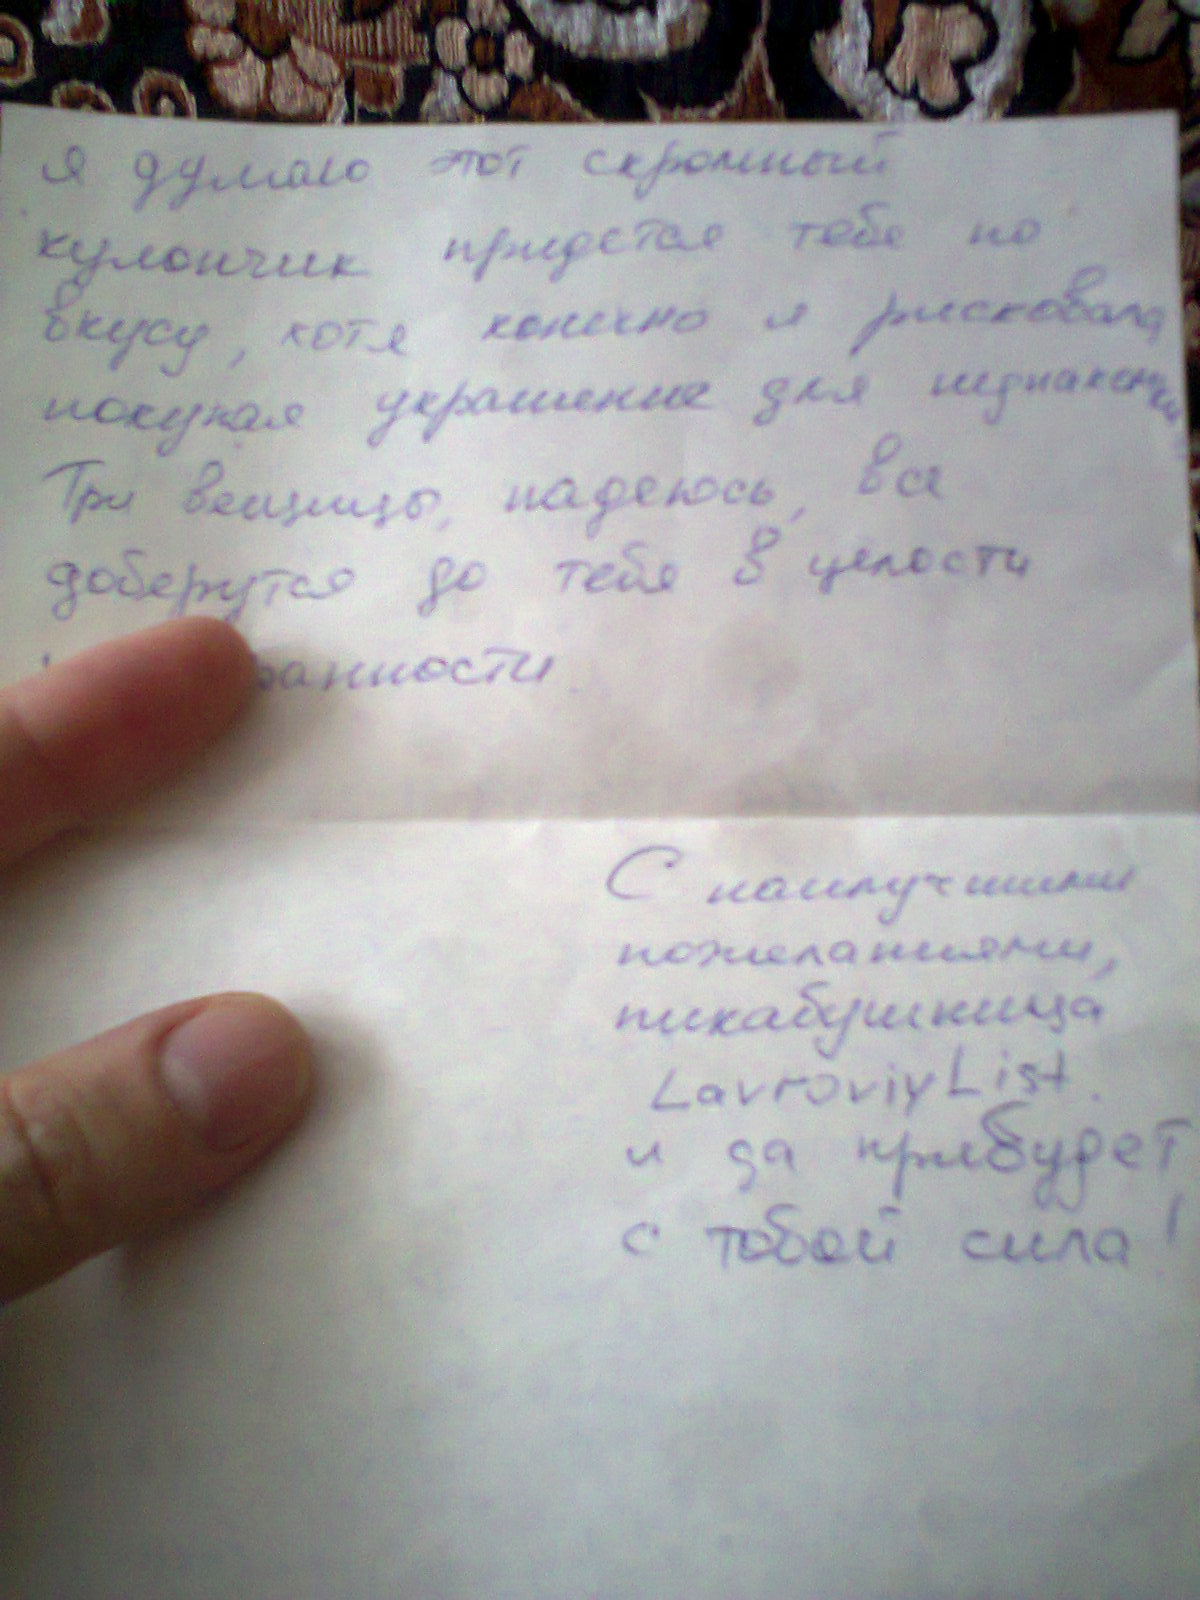 я думаю этот скромный
кулончик придется тебе по
вкусу, хотя конечно я рисковала
покупая украшение для незнакомки
Три вещицы, надеюсь, все
доберутся до тебя в целости
ранности.
С наилучшими
пожеланиями,
пикабушница
LavroviyList.
и да прибудет
с тобой сила!